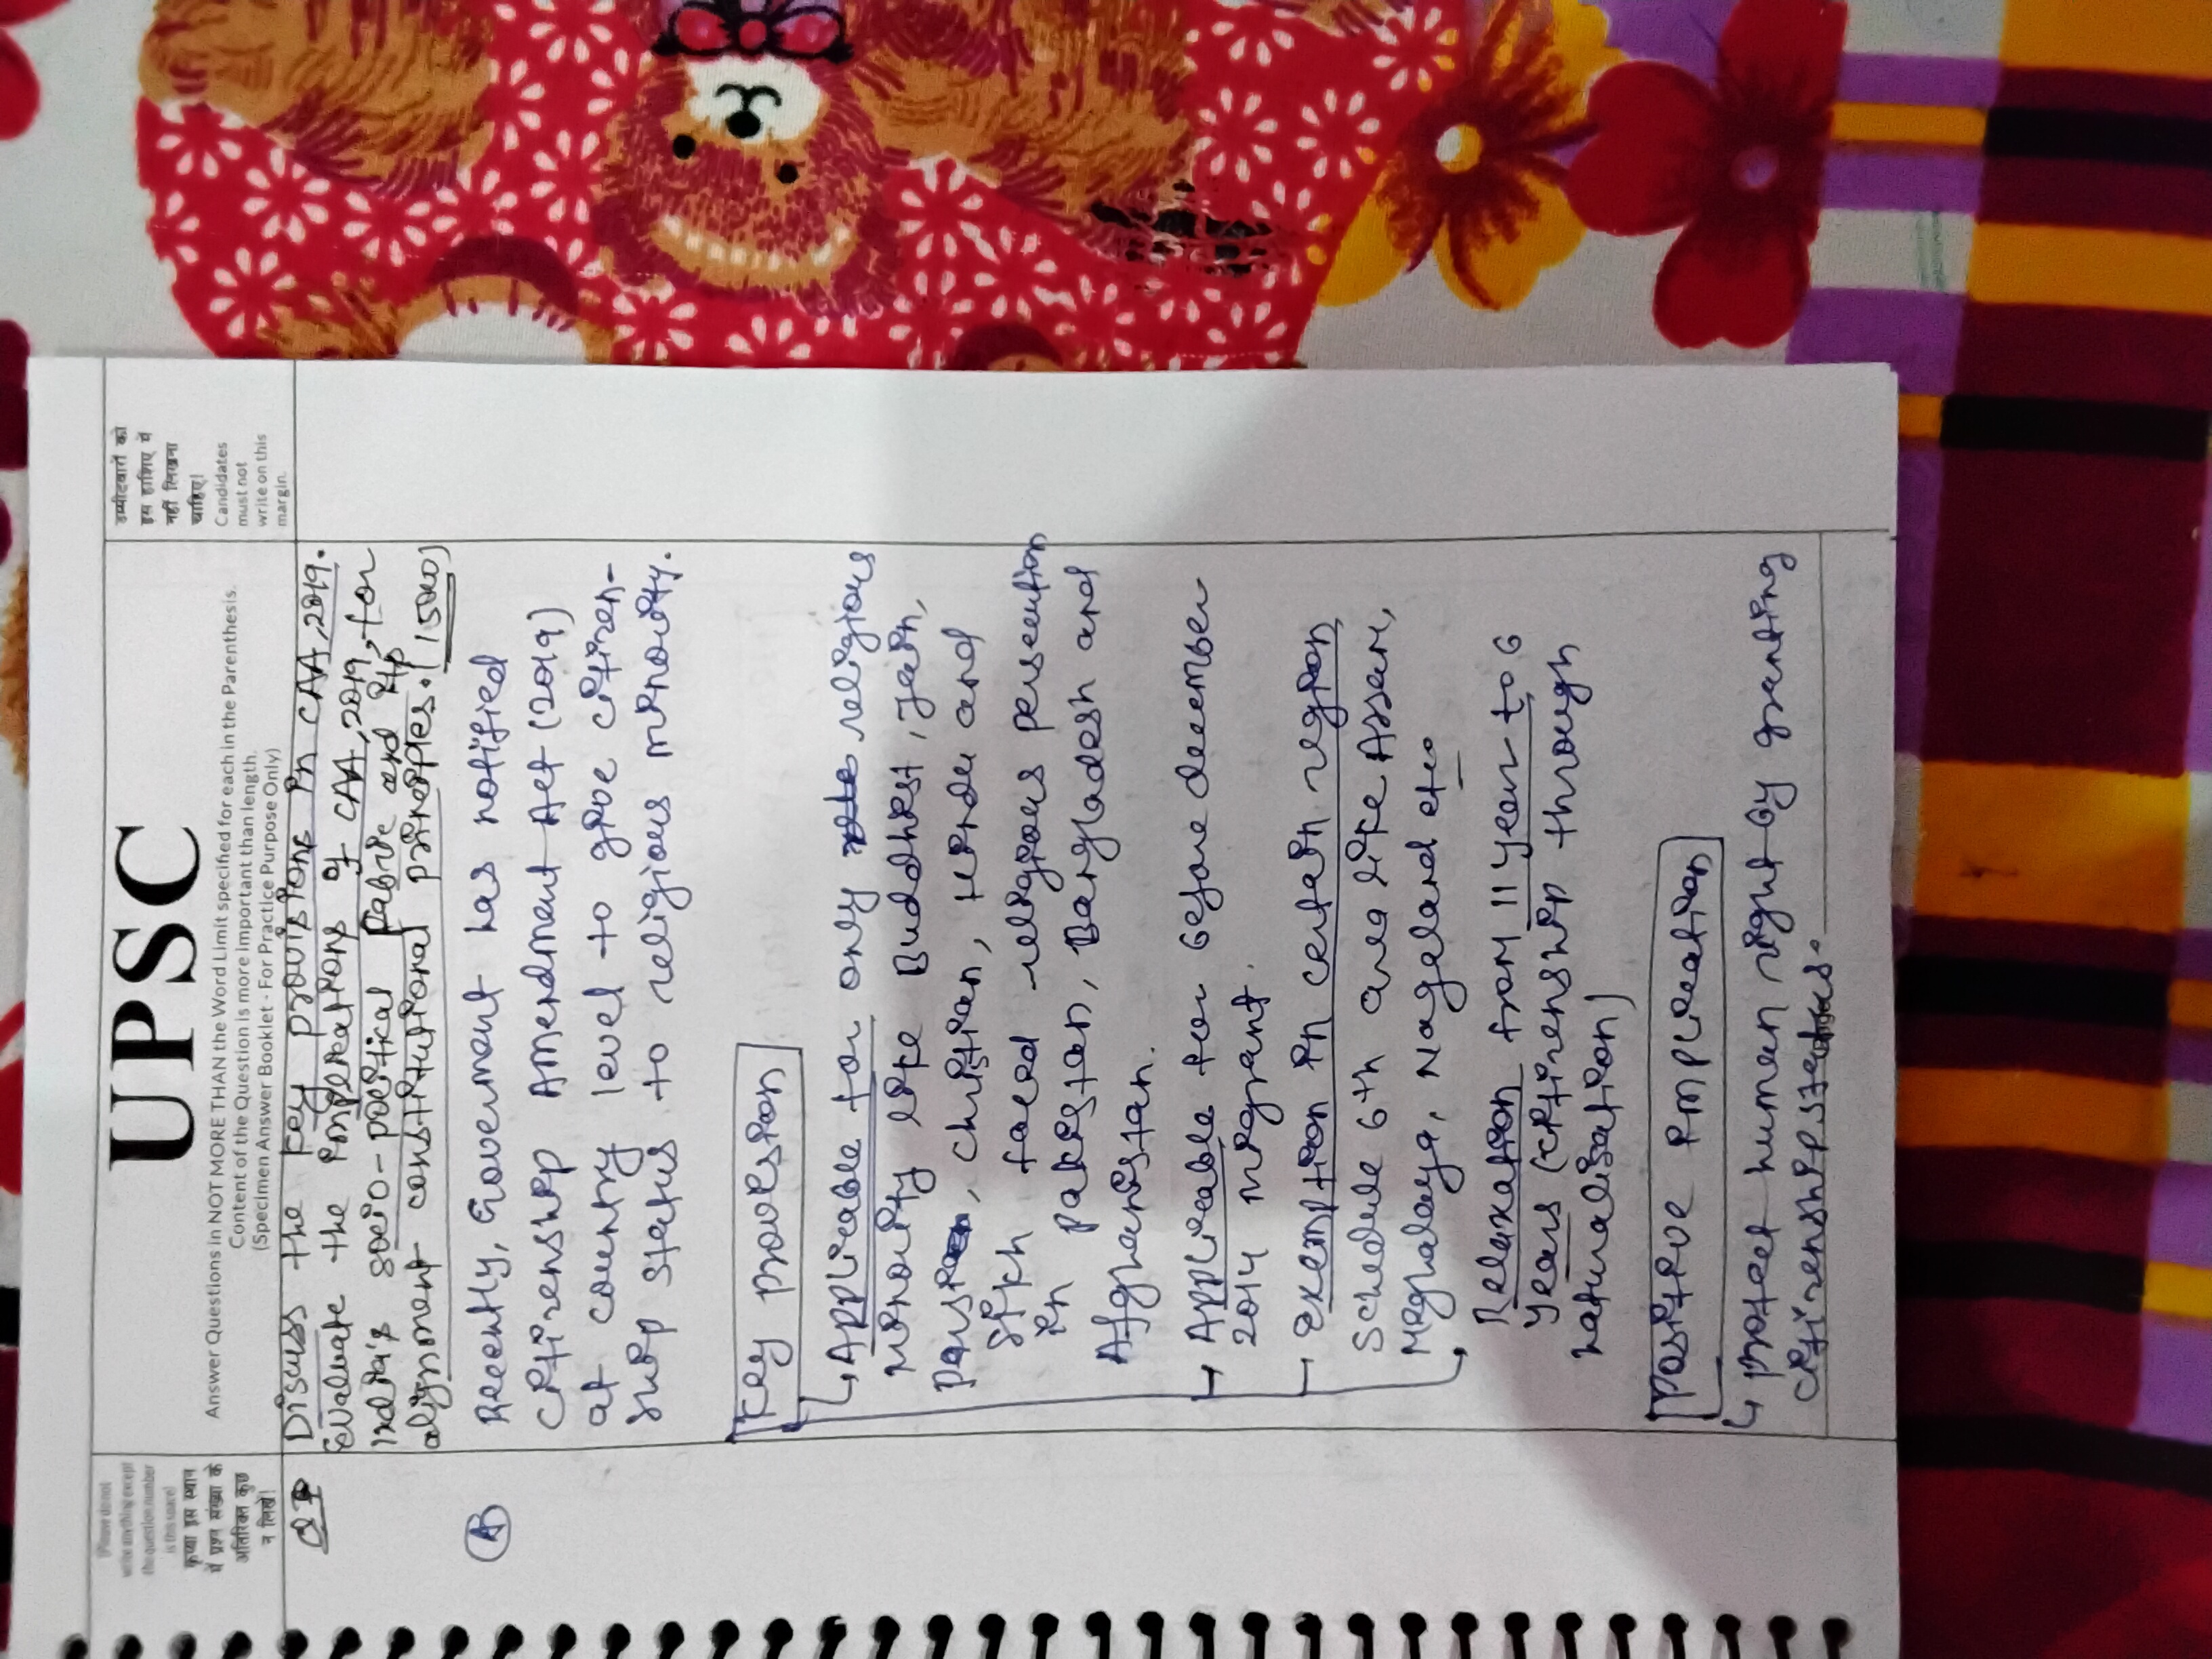 (Please do not
write anything except
the question number
in this space)
कृप्या इस स्थान
में प्रश्न संख्या के
अतिरिक्त कुछ
न लिखें।
UPSC
Answer Questions in NOT MORE THAN the Word Limit specified for each in the Parenthesis.
Content of the Question is more important than length.
(Specimen Answer Booklet - For Practice Purpose Only)
उम्मीदवारों को
इस हाशिए में
नहीं लिखना
चाहिए।
Candidates
must not
write on this
margin.
Discuss the key provisions in CAA, 2019.
Evaluate the implications of CAA, 2019, for
India's socio-political fabric and its
alignment constitutional principles. (150w)
A
Recently, Government has notified
citizenship Amendment Act (2019)
at country level to give citizen-
ship status to religious minority.
Key provision
Applicable for only religious
minority like Buddhist, Jain,
Parsi, christian, Hindu and
Sikh faced religious persecution
in pakistan, Bangladesh and
Afghanistan.
Applicable for before december
2014 migrant.
exemption in certain region
schedule 6th area like Assam,
Meghalaya, Nagaland etc
Relaxation from 11 year to 6
years (citizenship through
naturalisation)
Positive implication
protect human right by granting
citizenship status.